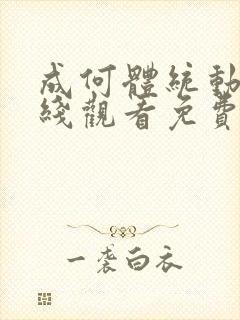 成何體統動
綫觀看免費
一袭白衣